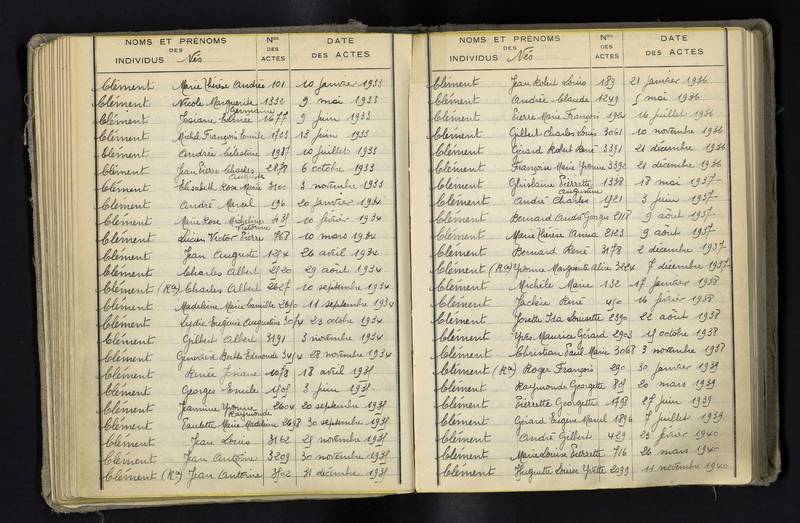 NOMS ET PRÉNOMS
DES
INDIVIDUS Nés
Nos
DES
ACTES
DATE
DES ACTES
Clément Marie Thérèse Andrée 101 10 janvier 1933
Clément Nicole Marguerite 1332 9 mai 1933
Germaine
Clément Josiane 1677 9 juin 1933
Clément Michel François Emile 1723 13 juin 1933
Clément Andrée Célestine 1987 10 juillet 1933
Clément Jean Pierre Charles 2879 6 octobre 1933
Auguste
Clément Elisabeth Rose Marie 3100 3 novembre 1933
Clément André Marcel 196 20 janvier 1934
Clément Marie Rose Micheline 10 février 1934
Victorine
Clément Lucien Victor Pierre 768 10 mars 1934
Clément Jean Auguste 1294 26 avril 1934
Clément Charles Albert 2520 29 août 1934
Clément (Ron) Charles Albert 2627 10 septembre 1934
Clément Madeleine Marie Camille 2650 11 septembre 1934
Clément Lydie Eugénie Augustine 3074 23 octobre 1934
Clément Gilbert Albert 3191 3 novembre 1934
Clément Geneviève Berthe Edmonde 3414 28 novembre 1934
Clément Renée Josiane 1078 18 avril 1935
Clément Georges Emile 1505 3 juin 1935
Clément Jeannine Yvonne 2604 20 septembre 1935
Raymonde
Clément Paulette Marie Madeleine 2698 30 septembre 1935
Clément Jean Louis 3162 25 novembre 1935
Clément Jean Antoine 3209 30 novembre 1935
Clément (Ron) Jean Antoine 3502 31 décembre 1935
NOMS ET PRÉNOMS
DES
INDIVIDUS Nés
Nos
DES
ACTES
DATE
DES ACTES
Clément Jean Robert Louis 189 21 janvier 1936
Clément Andrée Claude 1249 5 mai 1936
Clément Pierre Marie François 1920 16 juillet 1936
Clément Gilbert Charles Louis 3061 10 novembre 1936
Clément Gérard Robert René 3391 21 décembre 1936
Clément Françoise Marie Yvonne 3392 21 décembre 1936
Clément Ghislaine Pierrette 1338 18 mai 1937
Augustine
Clément André Charles 1521 3 juin 1937
Clément Bernard André Georges 2118 9 août 1937
Clément Marie Thérèse Anna 2123 9 août 1937
Clément Bernard René 3178 2 décembre 1937
Clément (Ron) Yvonne Marguerite Alice 3224 7 décembre 1937
Clément Michèle Marie 132 17 janvier 1938
Clément Jackie René 450 16 février 1938
Clément Josette Ida Louisette 2390 22 août 1938
Clément Yves Maurice Gérard 2903 15 octobre 1938
Clément Christian Paul Marie 3068 3 novembre 1938
Clément (Ron) Roger François 290 30 janvier 1939
Clément Raymonde Georgette 805 20 mars 1939
Clément Pierrette Georgette 1798 27 juin 1939
Clément Gérard Eugène Marcel 1896 7 juillet 1939
Clément André Gilbert 429 23 février 1940
Clément Marie Louise Pierrette 716 26 mars 1940
Clément Huguette Louise Yvette 2099 11 novembre 1940